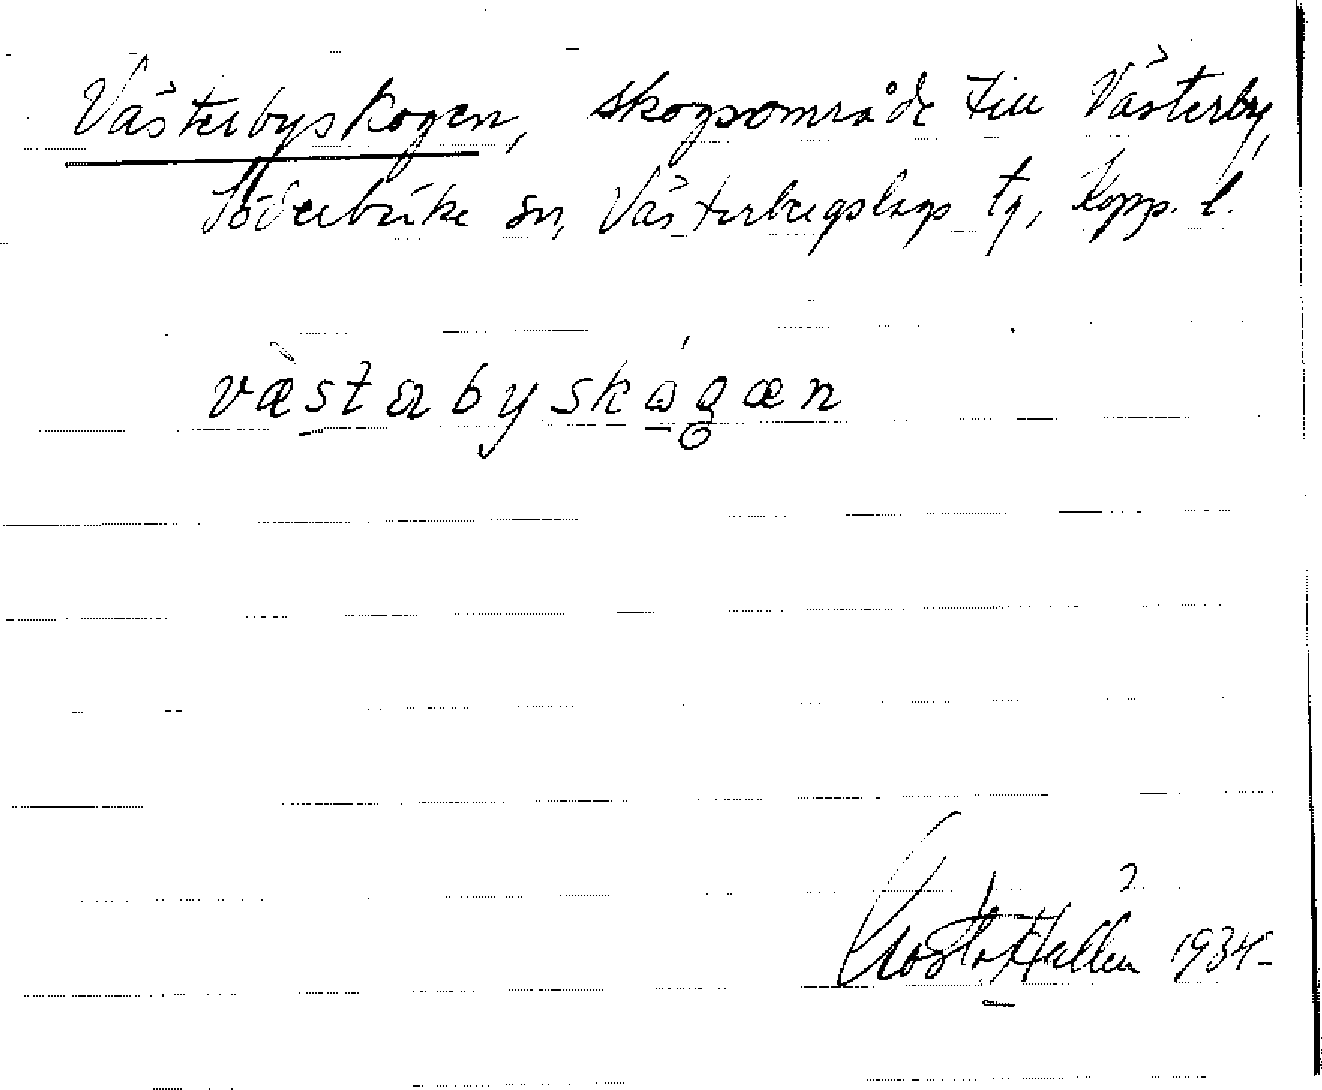 Västerbyskogen, skogsområde till Västerby,
Söderbärke sn, Västerbergslags tg, Kopp. l.
væstərbyskågæn
Gösta Hallén 1934